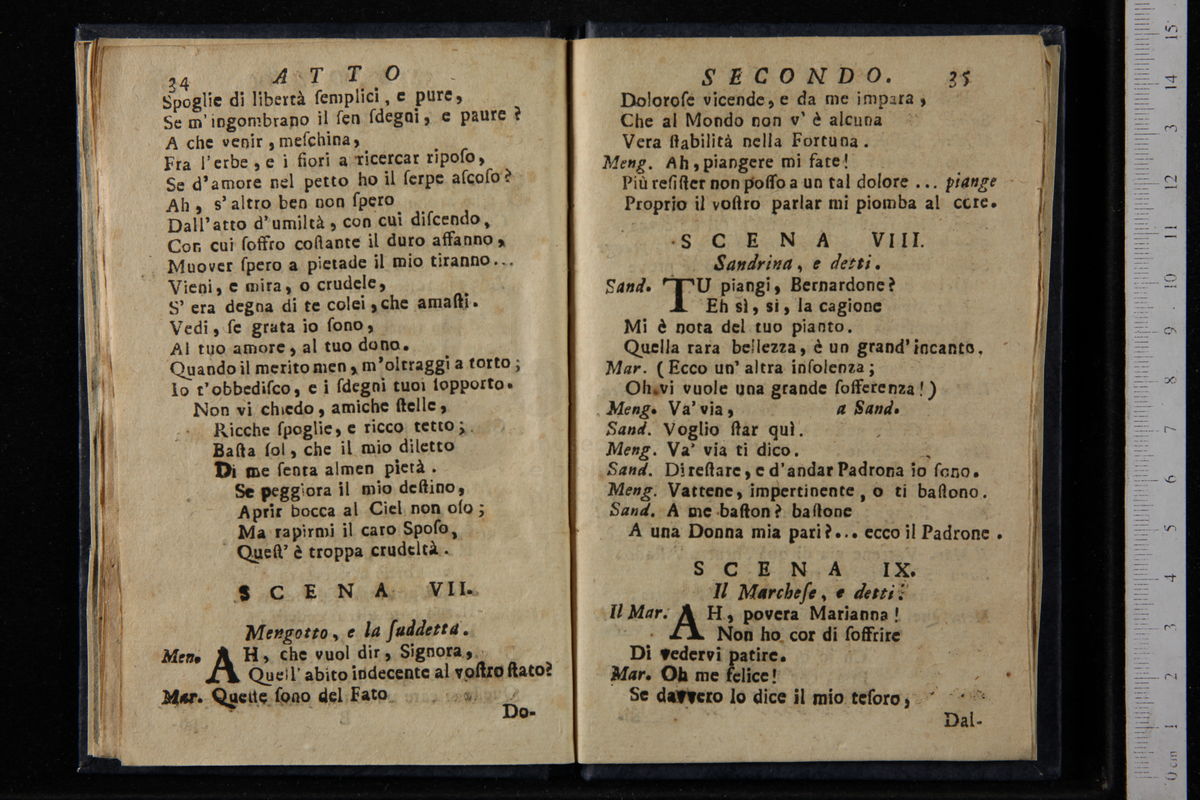 34 ATTO
Spoglie di libertà ſemplici, e pure,
Se m'ingombrano il ſen ſdegni, e paure?
A che venir, meſchina,
Fra l'erbe, e i fiori a ricercar ripoſo,
Se d'amore nel petto ho il ſerpe aſcoſo?
Ah, s'altro ben non ſpero
Dall'atto d'umiltà, con cui diſcendo,
Con cui ſoffro coſtante il duro affanno,
Muover ſpero a pietade il mio tiranno...
Vieni, e mira, o crudele,
S' era degna di te colei, che amaſti.
Vedi, ſe grata io ſono,
Al tuo amore, al tuo dono.
Quando il merito men, m'oltraggi a torto;
Io t'obbediſco, e i ſdegni tuoi ſopporto.
Non vi chiedo, amiche ſtelle,
Ricche ſpoglie, e ricco tetto;
Baſta ſol, che il mio diletto
Di me ſenta almen pietà.
Se peggiora il mio deſtino,
Aprir bocca al Ciel non oſo;
Ma rapirmi il caro Spoſo,
Queſt' è troppa crudeltà.
SCENA VII.
Mengotto, e la ſuddetta.
Men. AH, che vuol dir, Signora,
Quell'abito indecente al voſtro ſtato?
Mar. Queſte ſono del Fato
Do-
SECONDO. 35
Doloroſe vicende, e da me impara,
Che al Mondo non v' è alcuna
Vera ſtabilità nella Fortuna.
Meng. Ah, piangere mi fate!
Più reſiſter non poſſo a un tal dolore ... piange
Proprio il voſtro parlar mi piomba al core.
SCENA VIII.
Sandrina, e detti.
Sand. TU piangi, Bernardone?
Eh sì, sì, la cagione
Mi è nota del tuo pianto.
Quella rara bellezza, è un grand'incanto.
Mar. (Ecco un'altra inſolenza;
Oh vi vuole una grande ſofferenza!)
Meng. Va' via, a Sand.
Sand. Voglio ſtar quì.
Meng. Va' via ti dico.
Sand. Di reſtare, e d'andar Padrona io ſono.
Meng. Vattene, impertinente, o ti baſtono.
Sand. A me baſton? baſtone
A una Donna mia pari?... ecco il Padrone.
SCENA IX.
Il Marcheſe, e detti.
Il Mar. AH, povera Marianna!
Non ho cor di ſoffrire
Di vedervi patire.
Mar. Oh me felice!
Se davvero lo dice il mio teſoro,
Dal-
15
14
13
12
11
10
9
8
7
6
5
4
3
2
1
0 cm